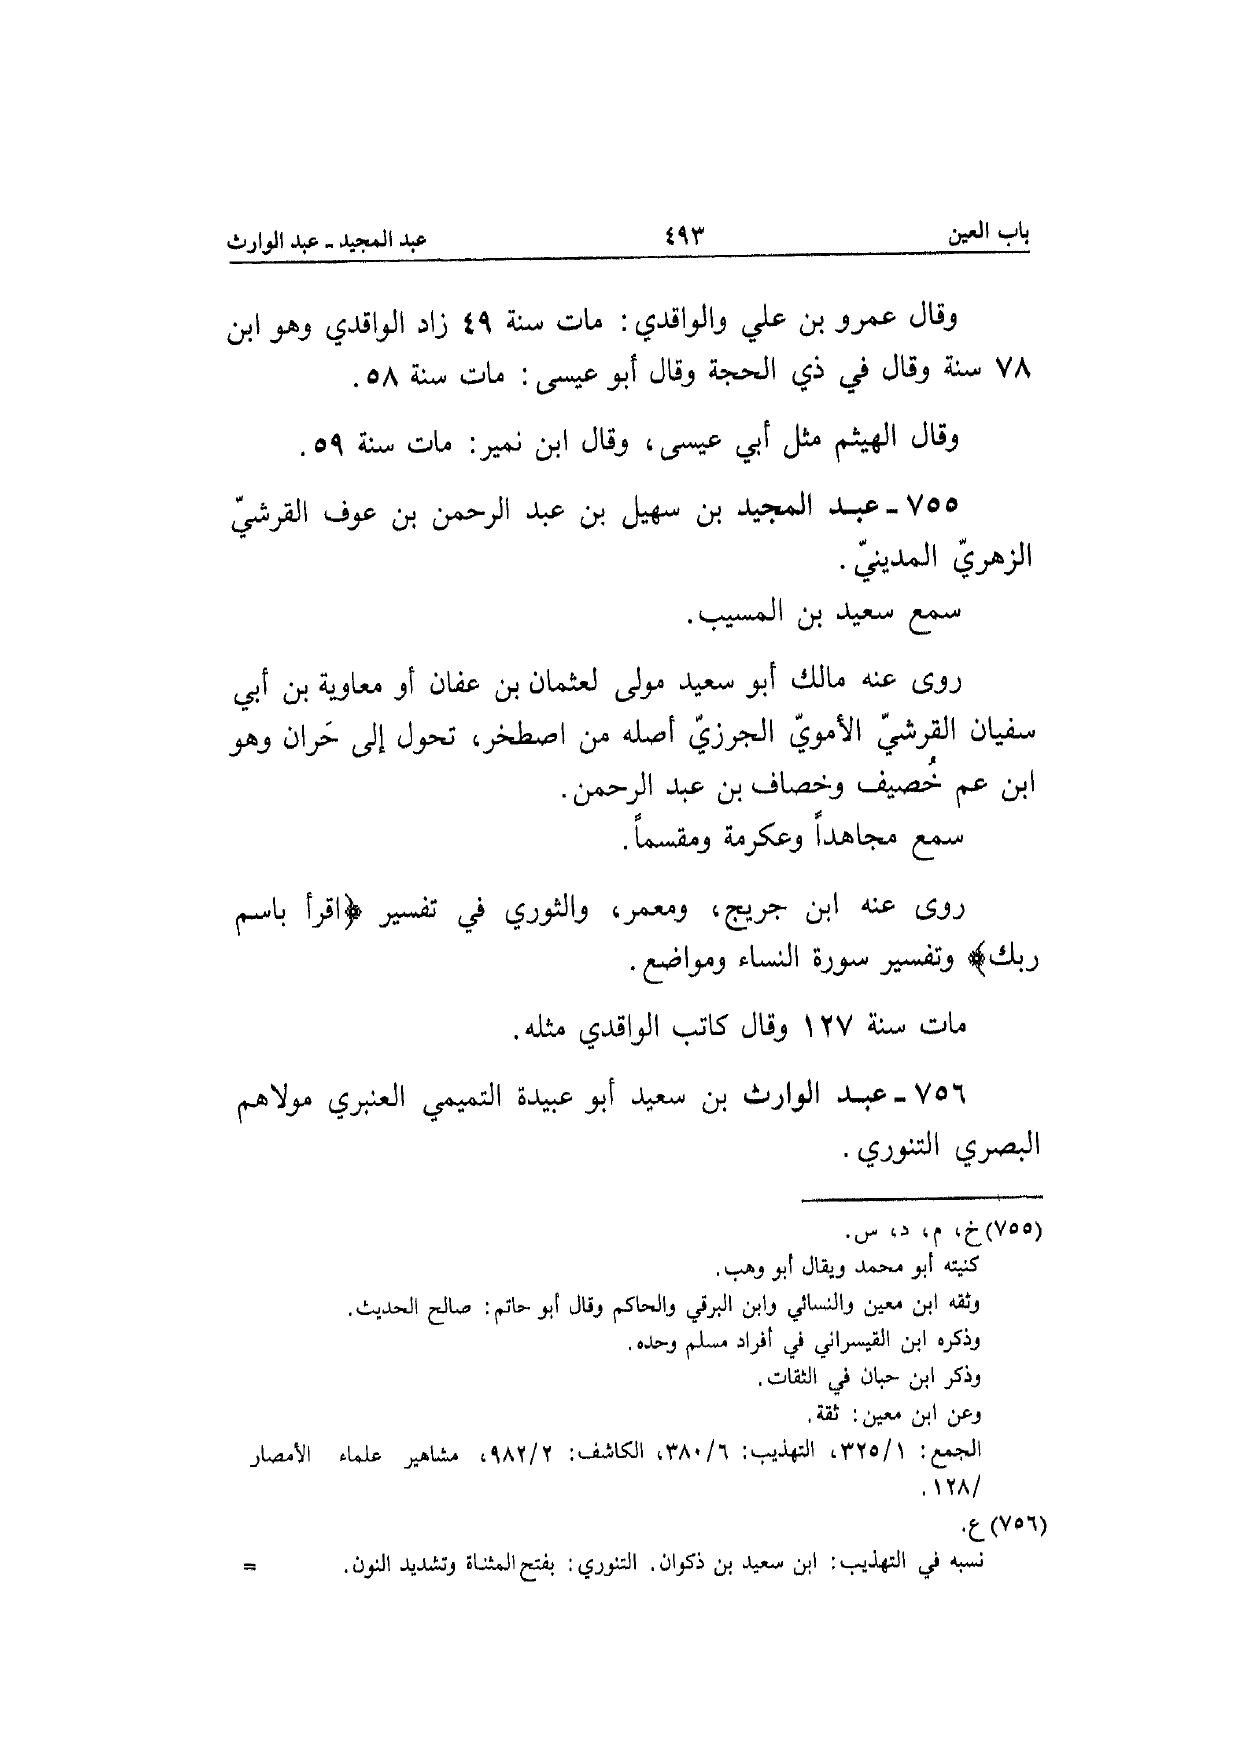 باب العين ٤٩٣ عبد المجيد ـ عبد الوارث
وقال عمرو بن علي والواقدي: مات سنة ٤٩ زاد الواقدي وهو ابن
٧٨ سنة وقال في ذي الحجة وقال أبو عيسى: مات سنة ٥٨.
وقال الهيثم مثل أبي عيسى، وقال ابن نمير: مات سنة ٥٩.
٧٥٥ ـ عبد المجيد بن سهيل بن عبد الرحمن بن عوف القرشيّ
الزهريّ المدينيّ.
سمع سعيد بن المسيب.
روى عنه مالك أبو سعيد مولى لعثمان بن عفان أو معاوية بن أبي
سفيان القرشيّ الأمويّ الجرزيّ أصله من اصطخر، تحول إلى حَران وهو
ابن عم خُصيف وخصاف بن عبد الرحمن.
سمع مجاهداً وعكرمة ومقسماً.
روى عنه ابن جريج، ومعمر، والثوري في تفسير ﴿اقرأ باسم
ربك﴾ وتفسير سورة النساء ومواضع.
مات سنة ١٢٧ وقال كاتب الواقدي مثله.
٧٥٦ ـ عبد الوارث بن سعيد أبو عبيدة التميمي العنبري مولاهم
البصري التنوري.
(٧٥٥) خ، م، د، س.
كنيته أبو محمد ويقال أبو وهب.
وثقه ابن معين والنسائي وابن البرقي والحاكم وقال أبو حاتم: صالح الحديث.
وذكره ابن القيسراني في أفراد مسلم وحده.
وذكر ابن حبان في الثقات.
وعن ابن معين: ثقة.
الجمع: ٣٢٥/١، التهذيب: ٣٨٠/٦، الكاشف: ٩٨٢/٢، مشاهير علماء الأمصار
/١٢٨.
(٧٥٦) ع.
نسبه في التهذيب: ابن سعيد بن ذكوان. التنوري: بفتح المثناة وتشديد النون. =